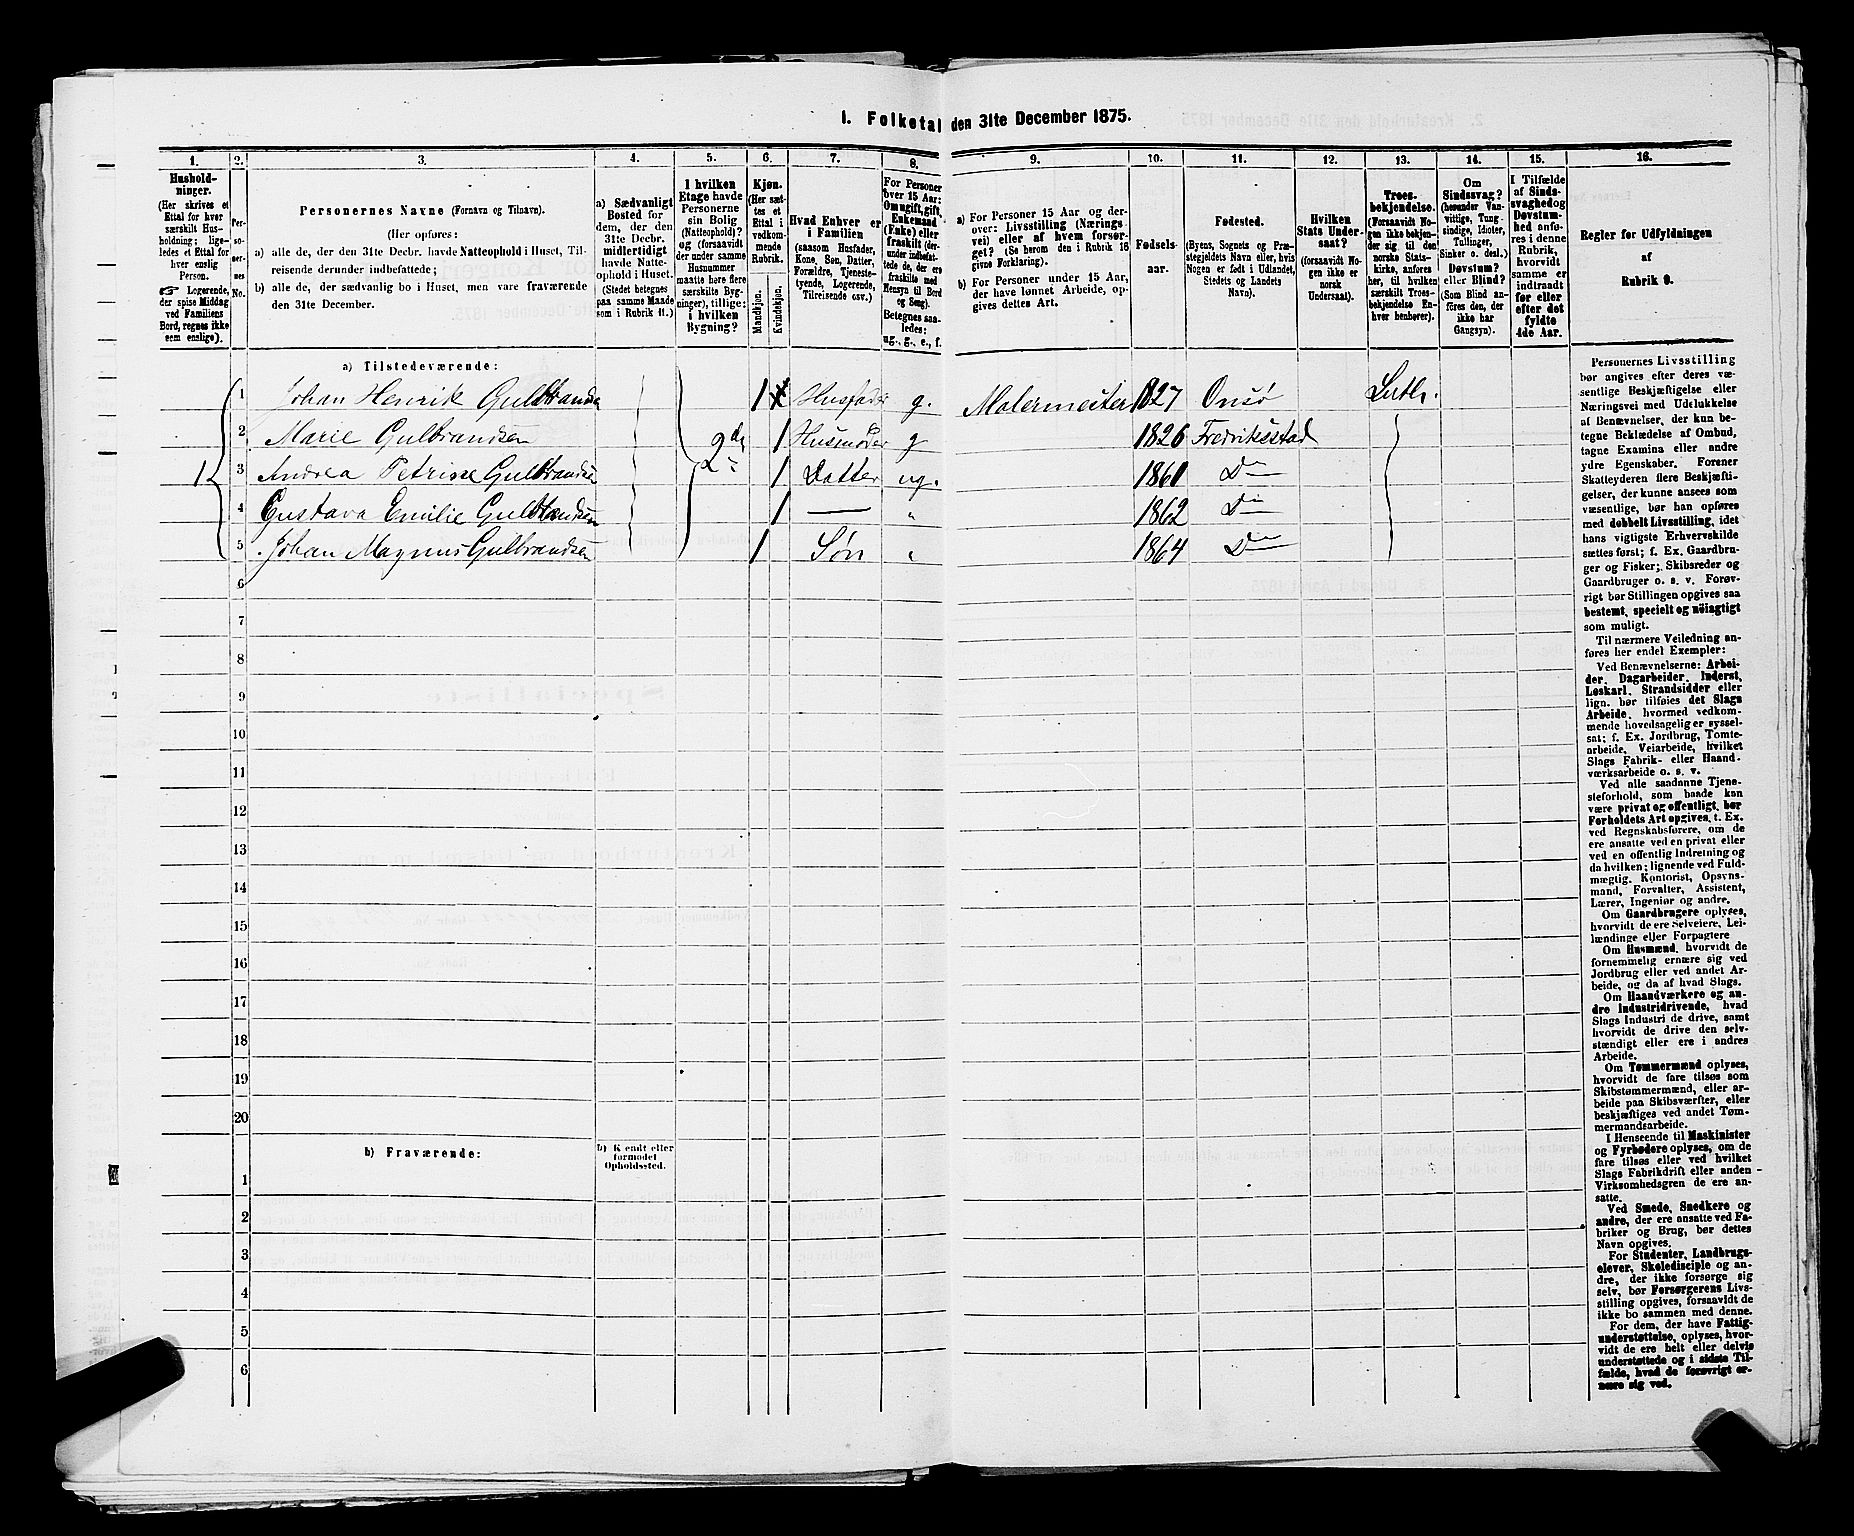 1. Folketal den 31te December 1875.
1. 2. 3. 4. 5. 6. 7. 8. 9. 10. 11. 12. 13. 14. 15. 16.
Hushold-
ninger.
(Her skrives et
Ettal for hver
særskilt Hus-
holdning; lige-
ledes et Ettal for
hver enslig
Person.
☞ Logerende,
der spise Middag
ved Familiens
Bord, regnes ikke
som enslige).
Per-
so-
ner-
nes
No.
Personernes Navne (Fornavn og Tilnavn).
(Her opføres:
a) alle de, der den 31te Decbr. havde Natteophold i Huset, Til-
reisende derunder indbefattede;
b) alle de, der sædvanlig bo i Huset, men vare fraværende
den 31te December.
a) Sædvanligt
Bosted for
dem, der den
31te Decbr.
midlertidigt
havde Natte-
ophold i Huset.
(Stedet betegnes
paa samme Maade
som i Rubrik 11.)
I hvilken
Etage havde
Personerne
sin Bolig
(Natteophold)?
og (forsaavidt
der under samme
Husnummer
maatte høre flere
særskilte Byg-
ninger), tillige:
i hvilken
Bygning?
Kjøn.
(Her sæt-
tes et
Ettal i
vedkom-
mende
Rubrik.
Mandkjøn.
Kvindekjøn.
Hvad Enhver er
i Familien
(saasom Husfader,
Kone, Søn, Datter,
Forældre, Tjeneste-
tyende, Logerende,
Tilreisende osv.)
For Personer
over 15 Aar:
Om ugift, gift,
Enkemand
(Enke) eller
fraskilt (der-
under indbefat-
tede de, der ere
fraskilte med
Hensyn til Bord
og Seng).
Betegnes saa-
ledes:
ug., g., e., f.
a) For Personer 15 Aar og der-
over: Livsstilling (Nærings-
vei) eller af hvem forsør-
get? (Se herom den i Rubrik 16
givne Forklaring).
b) For Personer under 15 Aar,
der have lønnet Arbeide, op-
gives dettes Art.
Fødsels-
aar.
Fødested.
(Byens, Sognets og Præ-
stegjeldets Navn eller, hvis
Nogen er født i Udlandet,
Stedets og Landets
Navn).
Hvilken
Stats Under-
saat?
(forsaavidt No-
gen ikke er
norsk
Undersaat).
Troes-
bekjendelse.
(Forsaavidt No-
gen ikke bekjen-
der sig til den
norske Stats-
kirke, anføres
her, til hvilken
særskilt Troes-
bekjendelse En-
hver henhører).
Om
Sindssvag?
(herunder Van-
vittige, Tung-
sindige, Idioter,
Tullinger,
Sinker o. desl.)
Døvstum?
eller Blind?
(Som Blind an-
føres den, der
ikke har
Gangsyn).
I Tilfælde
af Sinds-
svaghed og
Døvstum-
hed anfø-
res i denne
Rubrik,
hvorvidt
samme er
indtraadt
før eller
efter det
fyldte
4de Aar.
Regler for Udfyldningen
af
Rubrik 9.
a) Tilstedeværende:
1 1 Johan Henrik Gulbrandsen 2de 1 Husfader g. Malermester 1827 Onsø Luth.
2 Marie Gulbrandsen 1 Husmoder g 1826 Fredriksstad
3 Andrea Petrine Gulbrandsen 1 Datter ug. 1861 Do
4 Gustava Emilie Gulbrandsen 1 — " 1862 Do
5 Johan Magnus Gulbrandsen 1 Søn " 1864 Do
6
7
8
9
10
11
12
13
14
15
16
17
18
19
20
b) Fraværende:
b) Kjendt eller
formodet
Opholdssted.
1
2
3
4
5
6
Personernes Livsstilling
bør angives efter deres væ-
sentlige Beskjæftigelse eller
Næringsvei med Udelukkelse
af Benævnelser, der kun be-
tegne Beklædelse af Ombud,
tagne Examina eller andre
ydre Egenskaber. Forener
Skatteyderen flere Beskjæfti-
gelser, der kunne ansees som
væsentlige, bør han opføres
med dobbelt Livsstilling, idet
hans vigtigste Erhvervskilde
sættes først; f. Ex. Gaardbru-
ger og Fisker; Skibsreder og
Gaardbruger o. s. v. Forøv-
rigt bør Stillingen opgives saa
bestemt, specielt og nøiagtigt
som muligt.
Til nærmere Veiledning an-
føres her endel Exempler:
Ved Benævnelserne: Arbei-
der, Dagarbeider, Inderst,
Løskarl, Strandsidder eller
lign. bør tilføies det Slags
Arbeide, hvormed vedkom-
mende hovedsagelig er syssel-
sat; f. Ex. Jordbrug, Tomte-
arbeide, Veiarbeide, hvilket
Slags Fabrik- eller Haand-
værksarbeide o. s. v.
Ved alle saadanne Tjene-
steforhold, som baade kan
være privat og offentligt, bør
Forholdets Art opgives, t. Ex.
ved Regnskabsførere, om de
ere ansatte ved en privat eller
ved en offentlig Indretning og
da hvilken; lignende ved Fuld-
mægtig, Kontorist, Opsyns-
mand, Forvalter, Assistent,
Lærer, Ingeniør og andre.
Om Gaardbrugere oplyses,
hvorvidt de ere Selveiere, Lei-
lændinge eller Forpagtere
Om Husmænd, hvorvidt de
fornemmelig ernære sig ved
Jordbrug eller ved andet Ar-
beide, og da af hvad Slags.
Om Haandværkere og an-
dre Industridrivende, hvad
Slags Industri de drive, samt
hvorvidt de drive den selv-
stændigt eller ere i andres
Arbeide.
Om Tømmermænd oplyses,
hvorvidt de fare tilsøs som
Skibstømmermænd, eller ar-
beide paa Skibsværfter, eller
beskjæftiges ved andet Tøm-
mermandsarbeide.
I Henseende til Maskinister
og Fyrbødere oplyses, om de
fare tilsøs eller ved hvilket
Slags Fabrikdrift eller anden
Virksomhedsgren de ere an-
satte.
Ved Smede, Snedkere og
andre, der ere ansatte ved Fa-
briker og Brug, bør dettes
Navn opgives.
For Studenter, Landbrugs-
elever, Skoledisciple og an-
dre, der ikke forsørge sig
selv, bør Forsørgerens Livs-
stilling opgives, forsaavidt de
ikke bo sammen med denne.
For dem, der have Fattig-
understøttelse, oplyses, hvor-
vidt de ere helt eller delvis
understøttede og i sidste Til-
fælde, hvad de forøvrigt er-
nære sig ved.